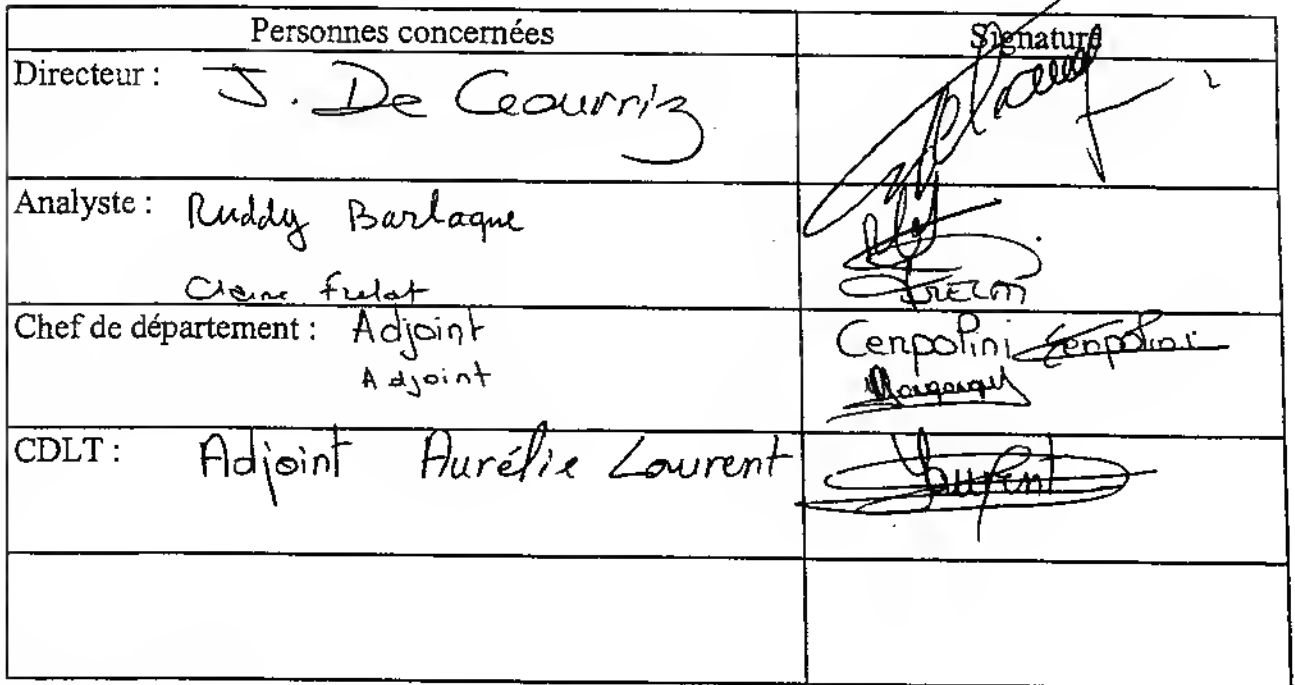 Personnes concernées Signature
Directeur : J. De Ceaurriz
Analyste : Ruddy Barlagne
Claire Frelat
Chef de département : Adjoint Cerpolini Cerpolini
Adjoint
CDLT : Adjoint Aurélie Laurent Laurent